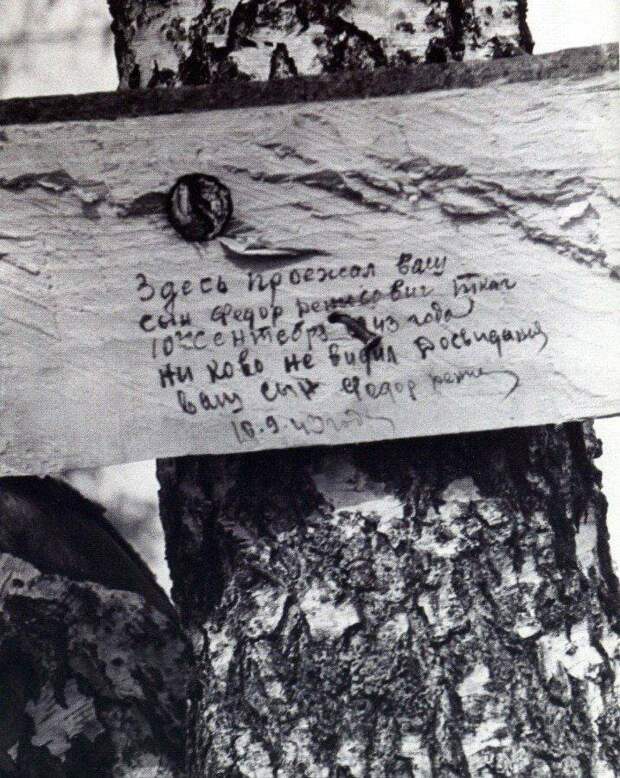 Здесь проежал ваш
сын Федор Денисович Ткач
10го Сентебра 43 года
ни ково не видил Досвидания
ваш сын Федор Дени
10.9.43 году